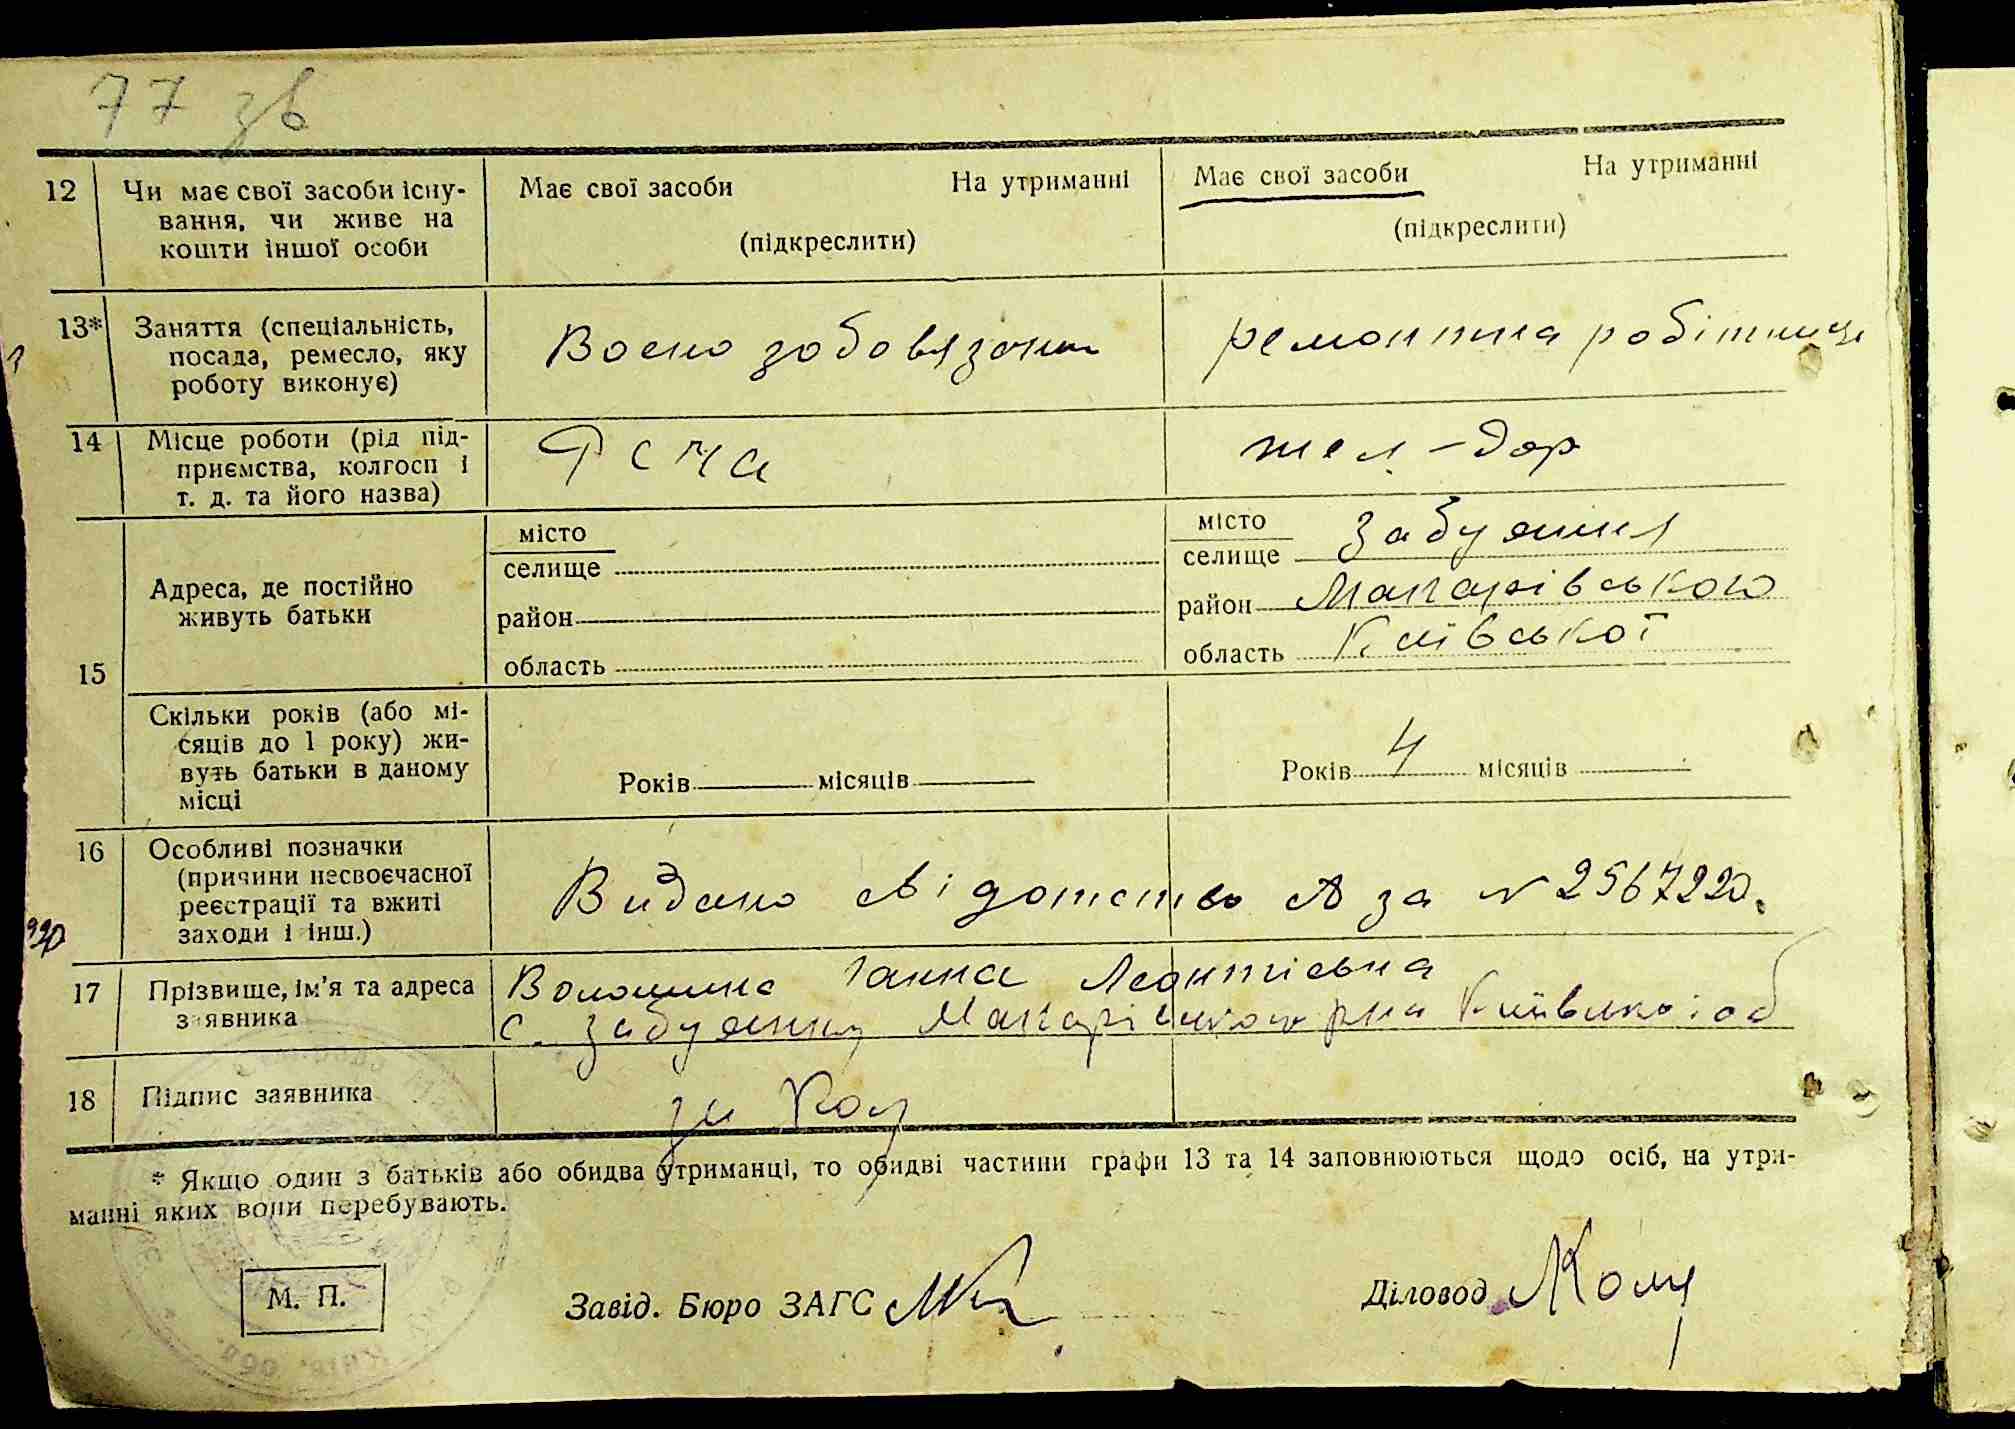 77 зв
12 Чи має свої засоби існу- Має свої засоби На утриманні Має свої засоби На утриманні
вання, чи живе на
кошти іншої особи (підкреслити) (підкреслити)
13* Заняття (спеціальність, Воено зобовязаний ремонтна робітниця
посада, ремесло, яку
роботу виконує)
14 Місце роботи (рід під- РСЧА жел-дор
приємства, колгосп і
т. д. та його назва)
15 Адреса, де постійно
живуть батьки
місто місто Забуяння
селище селище
район район Макарівського
область область Київської
Скільки років (або мі-
сяців до 1 року) жи-
вуть батьки в даному
місці
Років місяців Років 4 місяців
16 Особливі позначки
(причини несвоєчасної
реєстрації та вжиті
заходи і інш.)
Видано свідотство А за N 2567220.
17 Прізвище, ім'я та адреса
заявника
Волошина Ганна Леонтіевна
с. Забуяння Макарівського рна Київської об
18 Підпис заявника
* Якщо один з батьків або обидва утриманці, то обидві частини графи 13 та 14 заповнюються щодо осіб, на утри-
манні яких вони перебувають.
М. П. Завід. Бюро ЗАГС Діловод
Київ. обл.